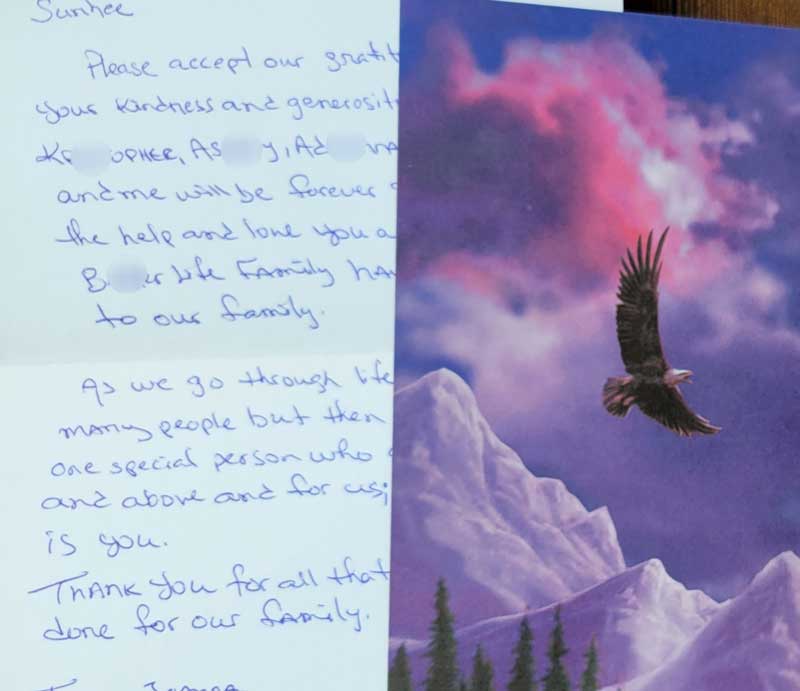 Sunhee
Please accept our gratit
your kindness and generosit
and me will be forever
the help and love you a
Life Family ha
to our family.
As we go through life
many people but then
one special person who
and above and for us;
is you.
Thank you for all that
done for our family.